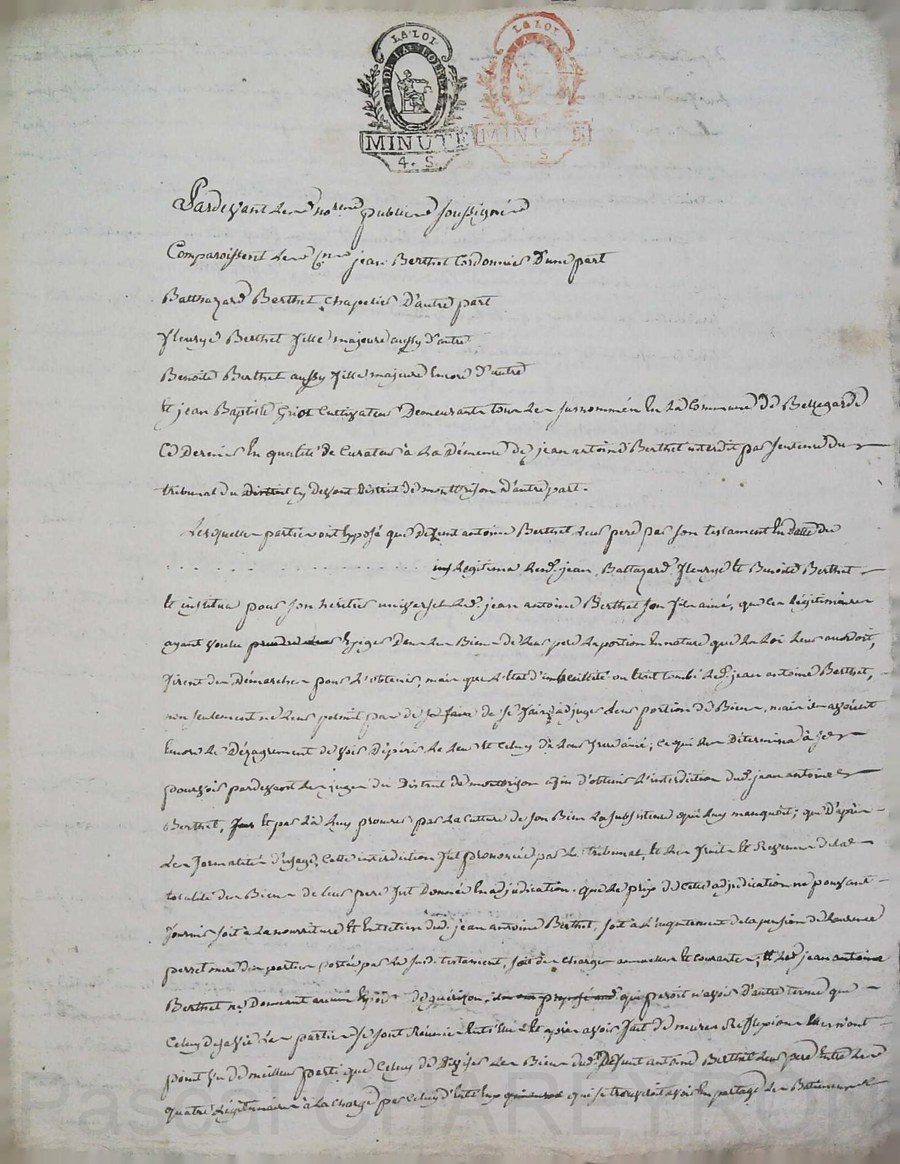 LA LOI
D. DE LA LOIRE
MINUTE
4. S.
LA LOI
MINUTE
S
Pardevant les nores publics soussignés
Comparoissent les cns jean Berthet Cordonnier D'une part
Balthazard Berthet Chapelier D'autre part
fleurye Berthet fille majeure aussy d'autre
Benoite Berthet aussy fille majeure Encore d'autre
Et jean Baptiste Griot Cultivateur Demeurants tous les susnommés En La Commune De Bellegarde
Ce Dernier En qualité de Curateur à La Démence de jean antoine Berthet interdit par sentence du
tribunal du District cy devant District de montbrison d'autre part.
Lesquelles parties ont Exposé que Défunt antoine Berthet Leur pere par son testament En datte du
. . . . . . . . . . . . . . . . Legitima Lesd. jean, Baltazard, fleurye et Benoite Berthet
Et institua pour son heritier universel Led. jean antoine Berthet son fils ainé, que les Légitimaires
ayant voulu prendre Exiger Dans Les Biens de Leur pere La portion En nature que La Loi Leur accordoit,
firent des Démarches pour L'obtenir, mais que L'état d'imbecillité ou Etoit tombé Led. jean antoine Berthet,
non seulement ne Leur permit pas de se faire de se faire adjuger Leur portion De Biens, mais ils avoient
Encore Le Dézagrement de voir Dépérir Le Leur et Celuy de Leur frere ainé; Ce qui Les Détermina à se
pourvoir pardevant Les juges du District de montbrison afin d'obtenir L'interdiction dud. jean antoine
Berthet, Et par Là Luy procurer par La Culture de son Bien La subsistence qui Luy manquoit; que D'après
Les formalités d'usage, Cette interdiction fut prononcée par Le tribunal, et Les fruits et Revenus de La
totalité des Biens de Leur pere fut Donnée En adjudication. que Le prix de Cette adjudication ne pouvant
fournir soit à La nourriture Et Entretien dud. jean antoine Berthet, soit à L'acquittement de La pension de Laurence
portée par Le sud. testament, soit des Charges annuelles et courantes; Et Led. jean antoine
Berthet ne Donnant aucun Espoir de guérison, qui paroit n'avoir D'autre terme que
Celuy de sa vie Les parties se sont Réunies Entr'elles Et après avoir fait De mures Reflexions Elles n'ont
point vu De meilleur parti que Celuy De Diviser Les Biens dud. Défunt antoine Berthet Leur pere Entre Les
quatre Légitimaires à La Charge par Celuy d'Entr'Eux qui se trouveroit avoir En partage Les Batiments
Pascal CHARETRON